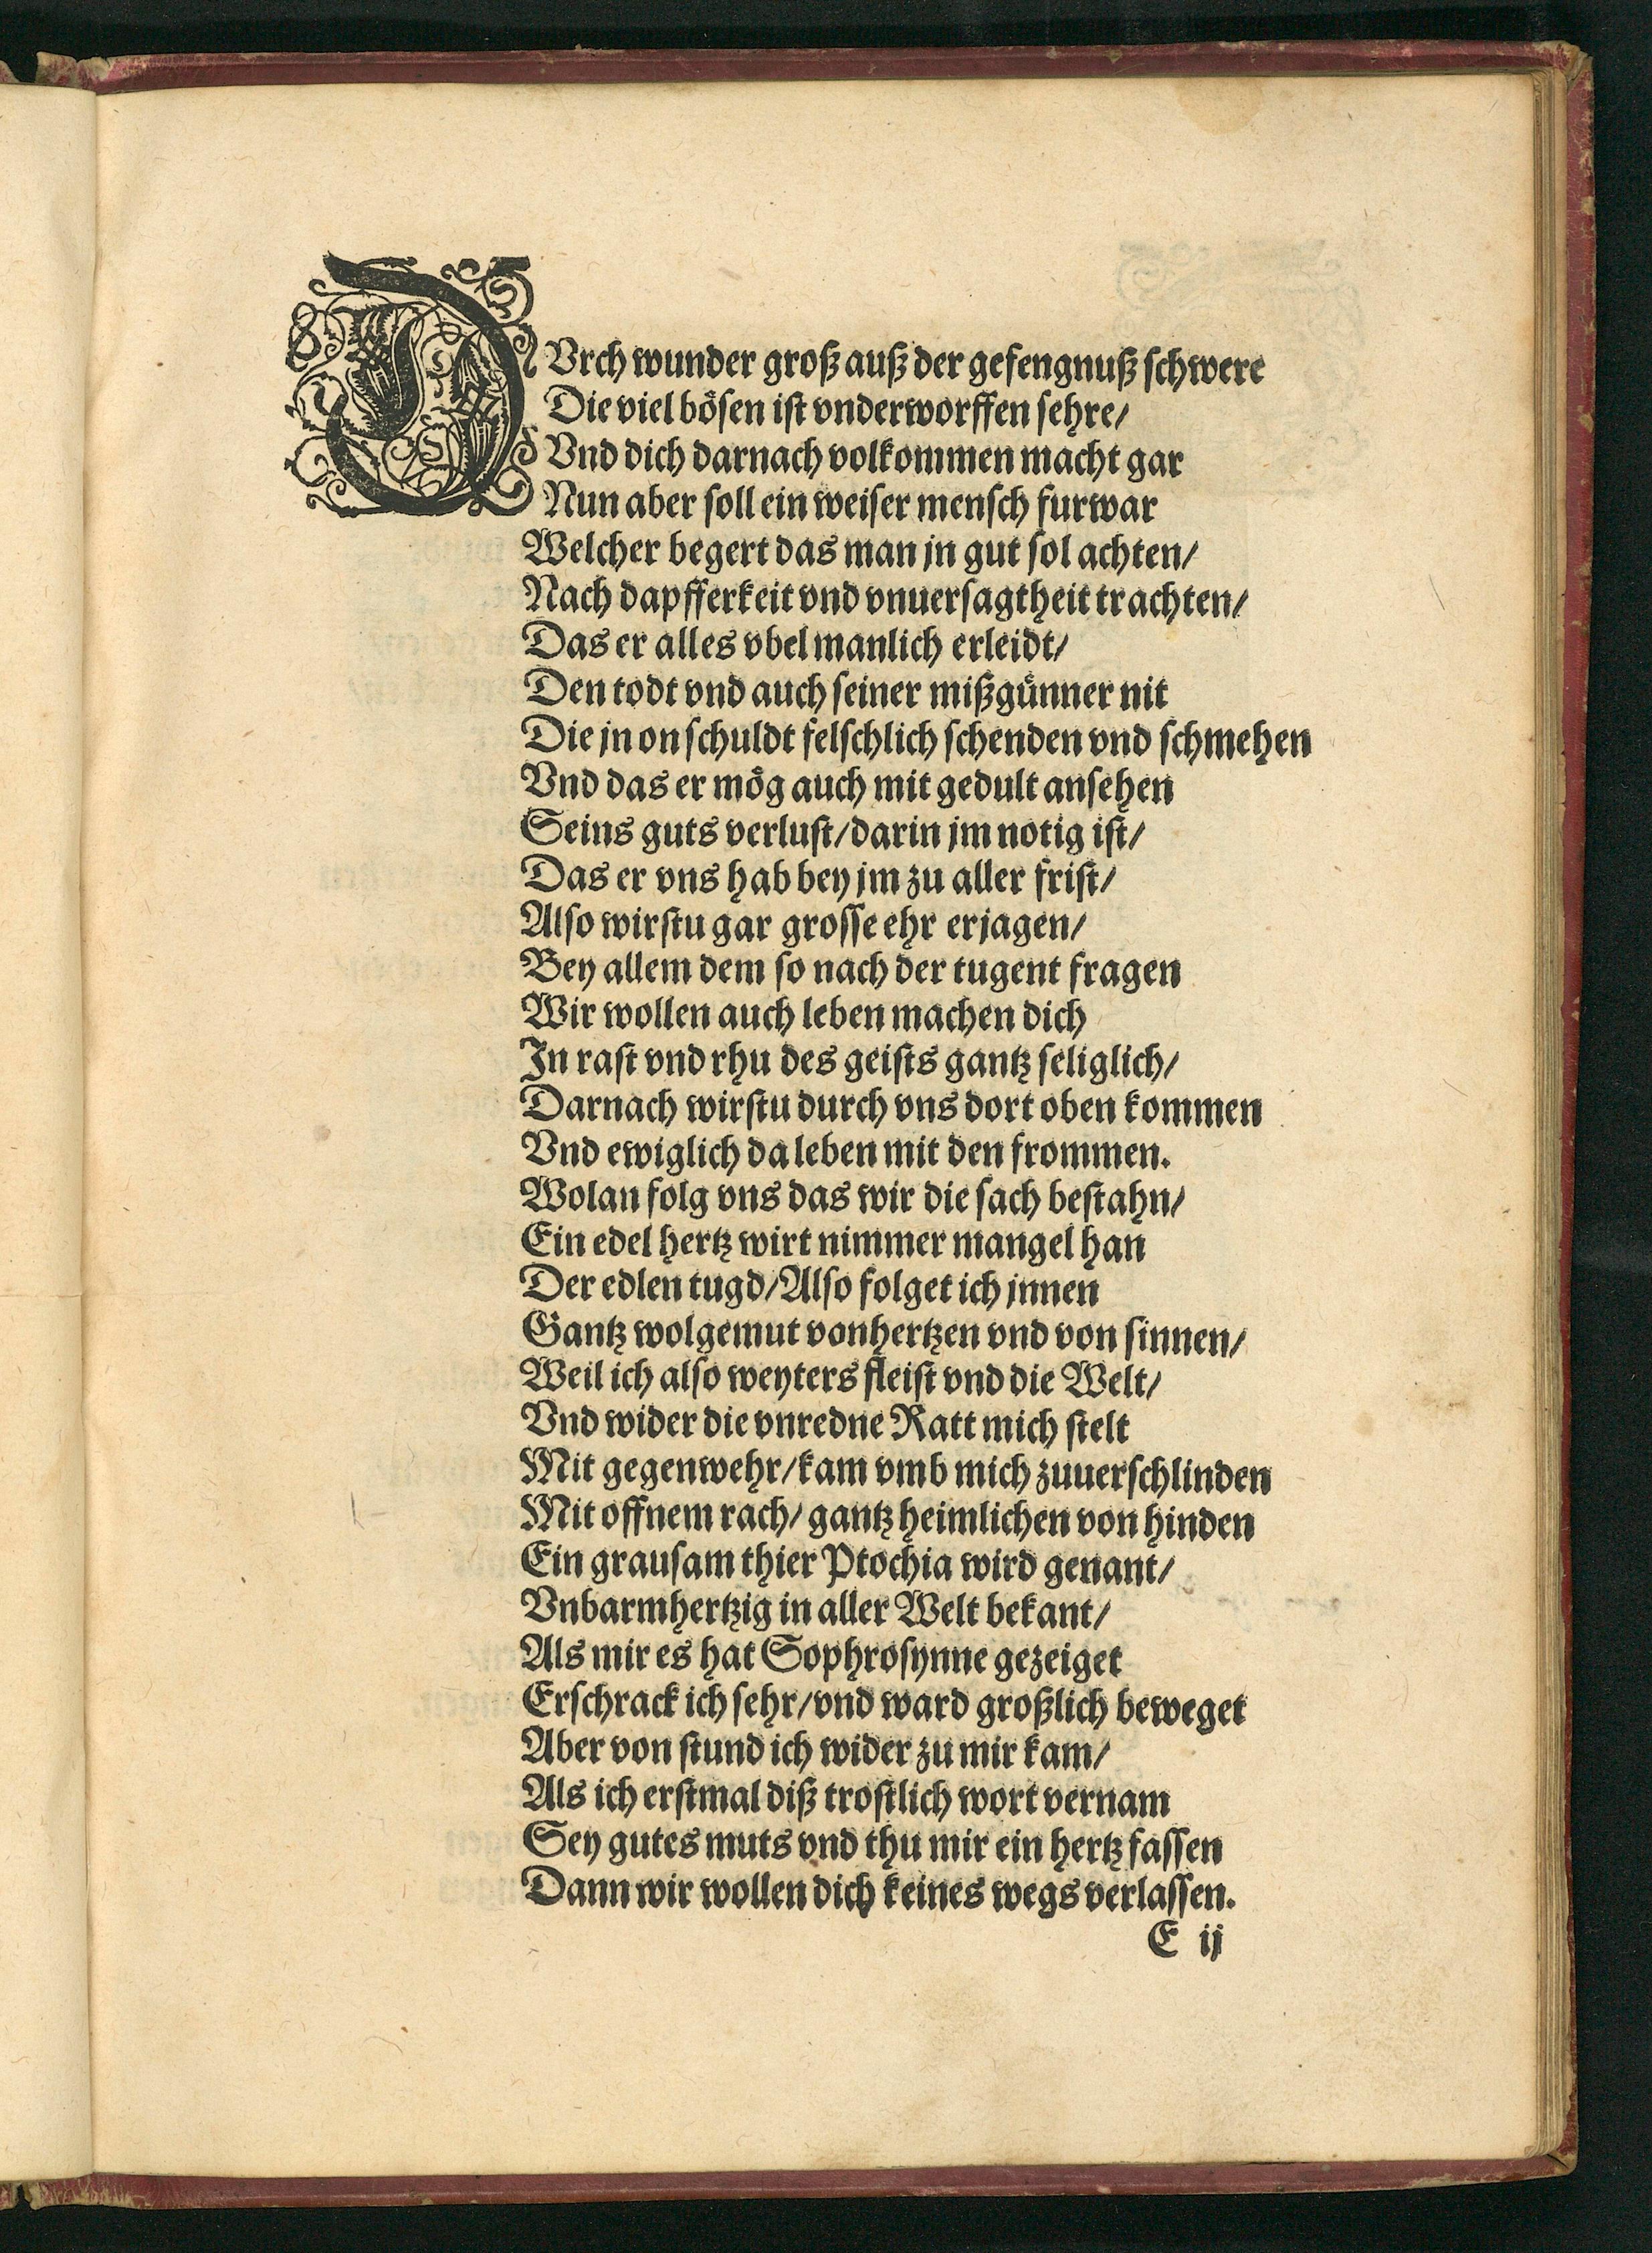 DVrch wunder groß auß der gefengnuß schwere
Die viel bösen ist vnderworffen sehre/
Vnd dich darnach volkommen macht gar
Nun aber soll ein weiser mensch furwar
Welcher begert das man jn gut sol achten/
Nach dapfferkeit vnd vnuersagtheit trachten/
Das er alles vbel manlich erleidt/
Den todt vnd auch seiner mißgünner nit
Die jn on schuldt felschlich schenden vnd schmehen
Vnd das er mög auch mit gedult ansehen
Seins guts verlust/darin jm notig ist/
Das er vns hab bey jm zu aller frist/
Also wirstu gar grosse ehr erjagen/
Bey allem dem so nach der tugent fragen
Wir wollen auch leben machen dich
In rast vnd rhu des geists gantz seliglich/
Darnach wirstu durch vns dort oben kommen
Vnd ewiglich da leben mit den frommen.
Wolan folg vns das wir die sach bestahn/
Ein edel hertz wirt nimmer mangel han
Der edlen tugd/Also folget ich jnnen
Gantz wolgemut von hertzen vnd von sinnen/
Weil ich also weyters fleist vnd die Welt/
Vnd wider die vnredne Ratt mich stelt
Mit gegenwehr/kam vmb mich zuuerschlinden
Mit offnem rach/gantz heimlichen von hinden
Ein grausam thier Ptochia wird genant/
Vnbarmhertzig in aller Welt bekant/
Als mir es hat Sophrosynne gezeiget
Erschrack ich sehr/vnd ward großlich beweget
Aber von stund ich wider zu mir kam/
Als ich erstmal diß trostlich wort vernam
Sey gutes muts vnd thu mir ein hertz fassen
Dann wir wollen dich keines wegs verlassen.
E ij